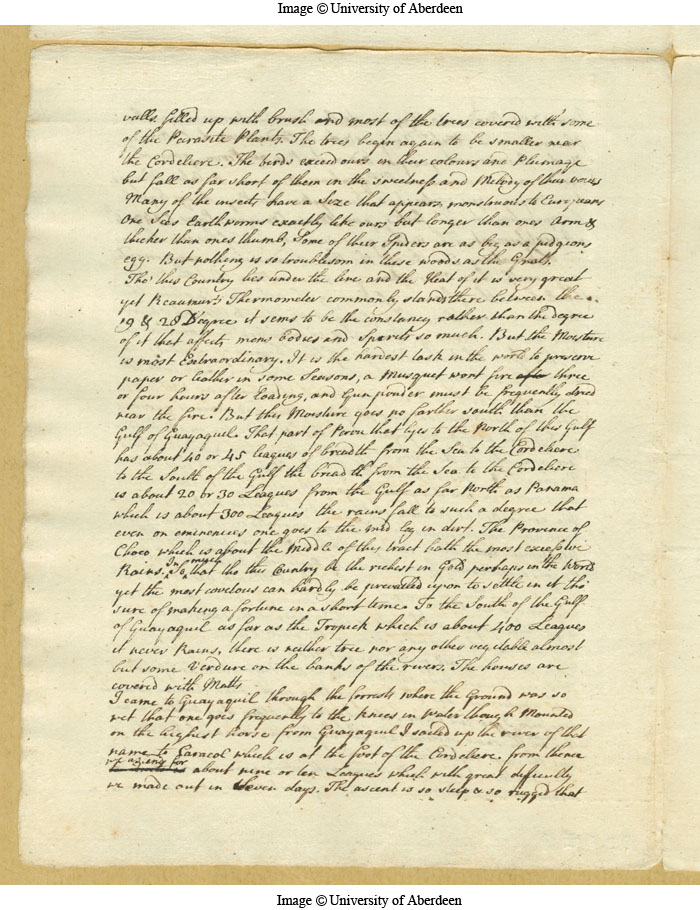 Image © University of Aberdeen
valls filled up with brush and most of the trees covered with some
of the Parasite Plants. The trees begin again to be smaller near
the Cordeliere. The birds exceed ours in their colours and Plumage
but fall as far short of them in the sweetness and Melody of their voices
Many of the insects have a Size that appears monstruous to Europeans
One Sees Earth worms exactly like ours but longer than ones Arm &
thicker than ones thumb, Some of their Spiders are as big as a pidgeons
egg. But nothing is so troublesom in these woods as the Gnats.
Tho' this Country lies under the line and the Heat of it is very great
yet Reaumurs Thermometer commonly stands there between the
19 & 28 Degree it seems to be the constancy rather than the degree
of it that affects mens bodies and Spirits so much. But the Moisture
is most Extraordinary. It is the hardest task in the world to preserve
paper or leather in some Seasons, a Musquet wont fire after three
or four hours after loading, and Gunpouder must be frequently dried
near the fire. But this Moisture goes no farther south than the
Gulf of Guayaquil. That part of Perou that lyes to the North of this Gulf
has about 40 or 45 leagues of breadth from the Sea to the Cordeliere
to the South of the Gulf the breadth from the Sea to the Cordeliere
is about 20 or 30 Leagues from the Gulf as far North as Panama
which is about 300 Leagues the rains fall to such a degree that
even on eminences one goes to the mid leg in dirt. The Province of
Choco which is about the Middle of this tract hath the most excessive
Rains. In so much that tho this Cuntry be the richest in Gold perhaps in the World
yet the most covetous can hardly be prevailed upon to settle in it tho'
sure of making a fortune in a short time. To the South of the Gulf
of Guayaquil as far as the Tropick which is about 400 Leagues
it never Rains, there is neither tree nor any other vegetable almost
but some Verdure on the banks of the rivers. The houses are
covered with Matts
I came to Guayaquil through the forrests where the Ground was so
wet that one goes frequently to the knees in Water though Mounted
on the highest horse from Guayaquil I sailed up the river of that
name to Caracol which is at the foot of the Cordeliere. from thence
about nine or ten Leagues which with great difficulty
we made out in seven days. The ascent is so steep & so rugged that
Image © University of Aberdeen